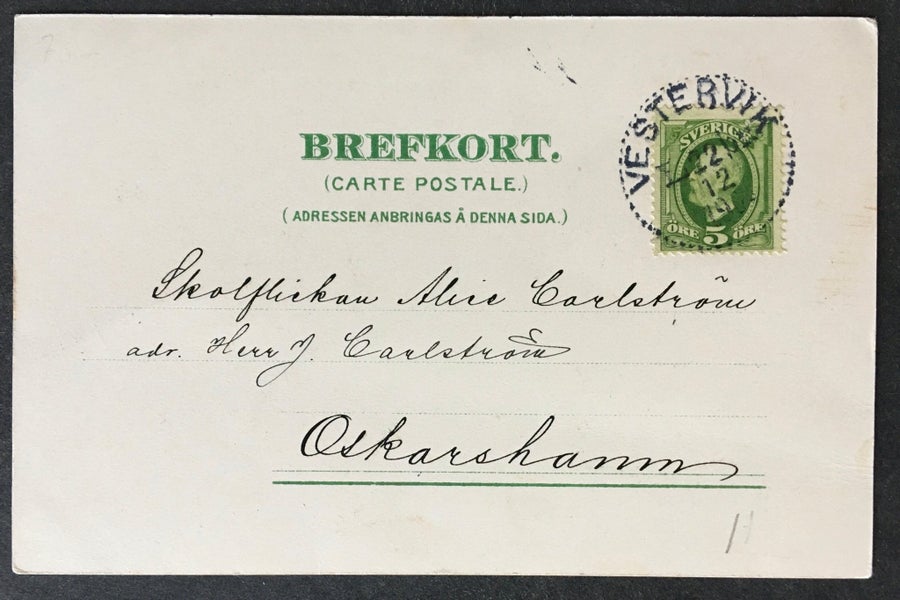 BREFKORT.
(CARTE POSTALE.)
(ADRESSEN ANBRINGAS Å DENNA SIDA.)
VESTERVIK
22
12
SVERIGE
ÖRE 5 ÖRE
Skolflickan Alice Carlström
adr. Herr J. Carlström
Oskarshamn